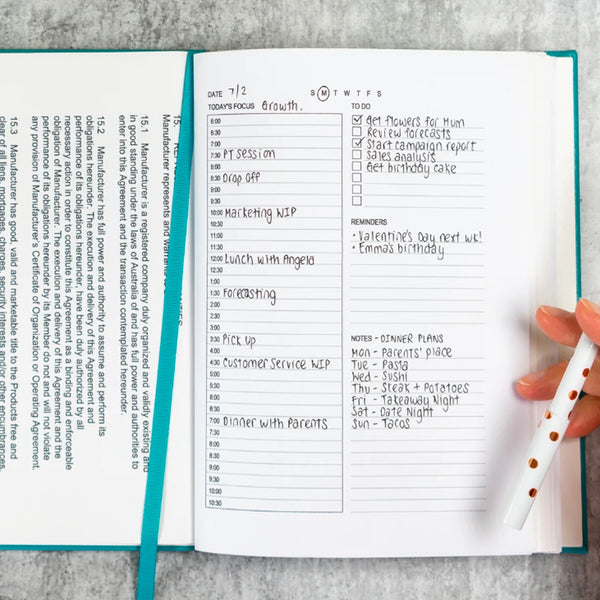 15.
Manufacturer represents and warrants to
15.1 Manufacturer is a registered company duly organized and validly existing and
in good standing under the laws of Australia of and has full power and authorities to
enter into this Agreement and the transaction contemplated hereunder.
15.2 Manufacturer has full power and authority to assume and perform its
obligations hereunder. The execution and delivery of this Agreement and
performance of its obligations hereunder, have been duly authorized by all
necessary action in order to constitute this Agreement as a binding and enforceable
obligation of Manufacturer. The execution and delivery of this Agreement and the
performance of its obligations hereunder by its Member do not and will not violate
any provision of Manufacturer's Certificate of Organization or Operating Agreement.
15.3 Manufacturer has good, valid and marketable title to the Products free and
clear of all liens, mortgages, charges, security interests and/or other encumbrances.
DATE 7/2 S M T W T F S
TODAY'S FOCUS Growth.
6:00
6:30
7:00
7:30 PT Session
8:00
8:30 Drop Off
9:00
9:30
10:00 Marketing WIP
10:30
11:00
11:30
12:00 Lunch with Angela
12:30
1:00
1:30 Forecasting
2:00
2:30
3:00
3:30 Pick Up
4:00
4:30 Customer Service WIP
5:00
5:30
6:00
6:30
7:00 Dinner with Parents
7:30
8:00
8:30
9:00
9:30
10:00
10:30
TO DO
Get flowers for Mum
Review forecasts
Start campaign report
Sales analysis
Get birthday cake
REMINDERS
• Valentine's Day next wk!
• Emma's birthday
NOTES - DINNER PLANS
Mon - Parents' place
Tue - Pasta
Wed - Sushi
Thu - Steak + Potatoes
Fri - Takeaway Night
Sat - Date Night
Sun - Tacos